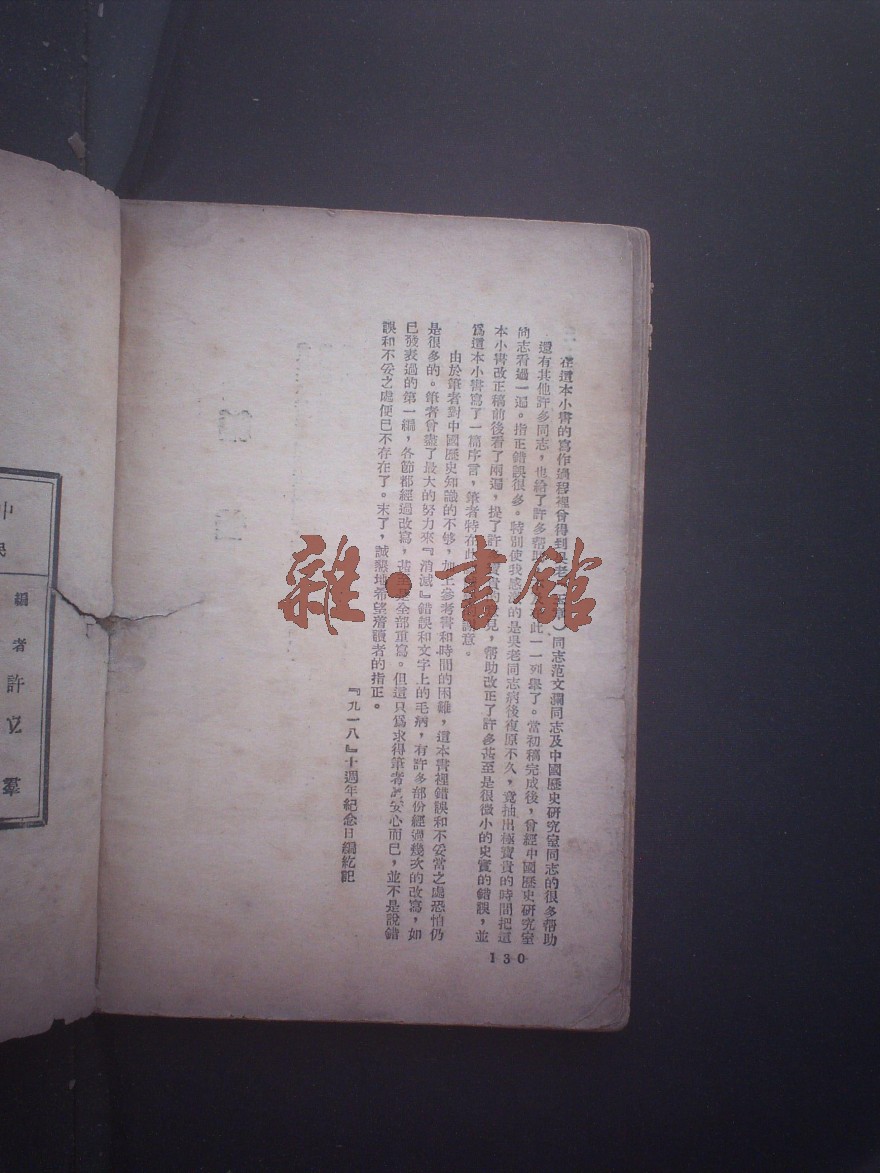 在這本小書的寫作過程裡曾得到吳老 同志范文瀾同志及中國歷史研究室同志的很多幫助
還有其他許多同志，也給了許多幫助 此一一列舉了。當初稿完成後，曾經中國歷史研究室
同志看過一遍。指正錯誤很多。特別使我感激的是吳老同志病後復原不久，竟抽出極寶貴的時間把這
本小書改正稿前後看了兩遍，提了許 寶貴的意見，幫助改正了許多甚至是很微小的史實的錯誤，並
爲這本小書寫了一篇序言，筆者特在此 謝意。
由於筆者對中國歷史知識的不够，加上參考書和時間的困難，這本書裡錯誤和不妥當之處恐怕仍
是很多的。筆者曾盡了最大的努力來『消滅』錯誤和文字上的毛病，有許多部份經過幾次的改寫，如
已發表過的第一編，各節都經過改寫， 全部重寫。但這只爲求得筆者 安心而已，並不是說錯
誤和不妥之處便已不存在了。末了，誠懇地希望着讀者的指正。
『九一八』十週年紀念日編訖記
130
中
民
編者 許立羣
雜·書館